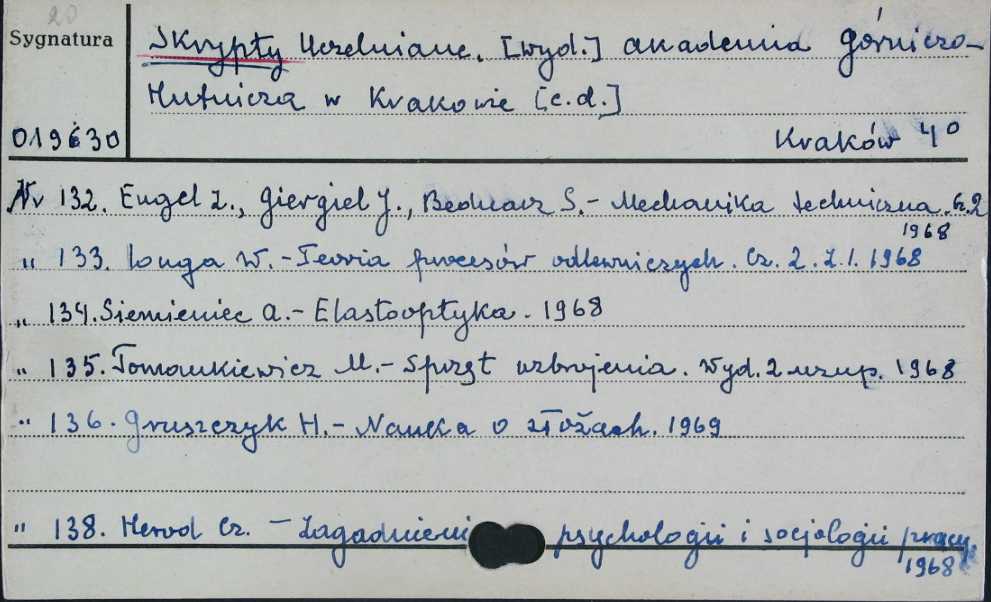 20
Sygnatura
Skrypty Uczelniane. [wyd.] Akademia Górniczo-
Hutnicza w Krakowie [c.d.]
019630
Kraków 4°
Nr 132. Engel Z., Giergiel J., Bednarz S. - Mechanika techniczna. Cz. 2
1968
" 133. Longa W. - Teoria procesów odlewniczych. Cz. 2. Z. 1. 1968
" 134. Siemieniec A. - Elastooptyka. 1968
" 135. M. - Sprzęt uzbrojenia. Wyd. 2 uzup. 1968
" 136. Gruszczyk H. - Nauka o złożach. 1969
" 138. Herod Cz. - Zagadnieni psychologii i socjologii pracy.
1968